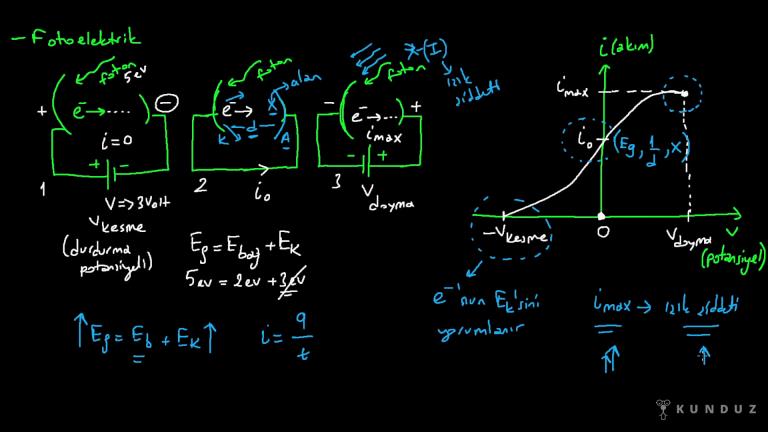 - Fotoelektrik
foton
5eV
+ e⁻→.... -
i=0
+ -
1
V=>3Volt
Vkesme
(durdurma
potansiyeli)
foton
alan
e⁻→ X
k d A
2
i₀
X(I)
ışık
şiddeti
foton
- e⁻→... +
imax
- +
3
Vdoyma
Ef = Ebağ + EK
5eV = 2eV + 3eV
↑Ef = Eb + EK↑
i = q/t
i (akım)
imax
i₀ (Ef, 1/d, X)
-Vkesme 0 Vdoyma V
(potansiyel)
e⁻¹nun Ek'sini
yorumlanır
imax → ışık şiddeti
KUNDUZ